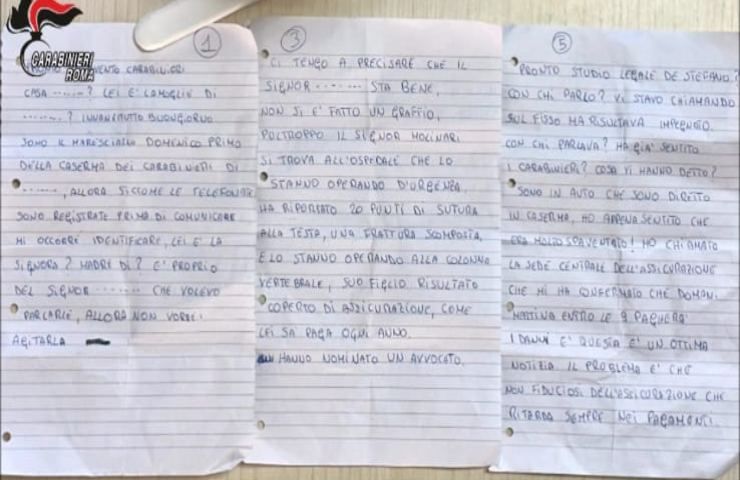 CARABINIERI
ROMA
1
PRONTO INTERVENTO CARABINIERI
CASA .......? LEI E' LA MOGLIE DI
.......? INNANZITUTTO BUONGIORNO
SONO IL MARESCIALLO DOMENICO PRIMO
DELLA CASERMA DEI CARABINIERI DI
......., ALLORA SICCOME LE TELEFONATE
SONO REGISTRATE PRIMA DI COMUNICARE
MI OCCORRE IDENTIFICARE, LEI E' LA
SIGNORA? MADRE DI? E' PROPRIO
DEL SIGNOR ....... CHE VOLEVO
PARCARLE, ALLORA NON VORREI
AGITARLA
3
CI TENGO A PRECISARE CHE IL
SIGNOR ....... STA BENE,
NON SI E' FATTO UN GRAFFIO,
POLTROPPO IL SIGNOR MOLINARI
SI TROVA ALL'OSPEDALE CHE LO
STANNO OPERANDO D'URGENZA.
HA RIPORTATO 20 PUNTI DI SUTURA
ALLA TESTA, UNA FRATTURA SCOMPOSTA,
E LO STANNO OPERANDO ALLA COLONNA
VERTEBRALE, SUO FIGLIO RISULTATO
COPERTO DI ASSICURAZIONE, COME
LEI SA PAGA OGNI ANNO.
HANNO NOMINATO UN AVVOCATO.
5
PRONTO STUDIO LEGALE DE STEFANO?
CON CHI PARLO? VI STAVO CHIAMANDO
SUL FISSO MA RISULTAVA IMPEGNATO.
CON CHI PARLAVA? HA GIA' SENTITO
I CARABINIERI? COSA VI HANNO DETTO?
SONO IN AUTO CHE SONO DIRETTO
IN CASERMA, HO APPENA SENTITO CHE
ERA MOLTO SPAVENTATO! HO CHIAMATO
LA SEDE CENTRALE DELL'ASSICURAZIONE
CHE MI HA CONFERMATO CHE DOMANI
MATTINA ENTRO LE 9 PAGHERA'
I DANNI E' QUESTA E' UN OTTIMA
NOTIZIA IL PROBLEMA E' CHE
NON FIDUCIOSI DELL'ASSICURAZIONE CHE
RITARDA SEMPRE NEI PAGAMENTI.